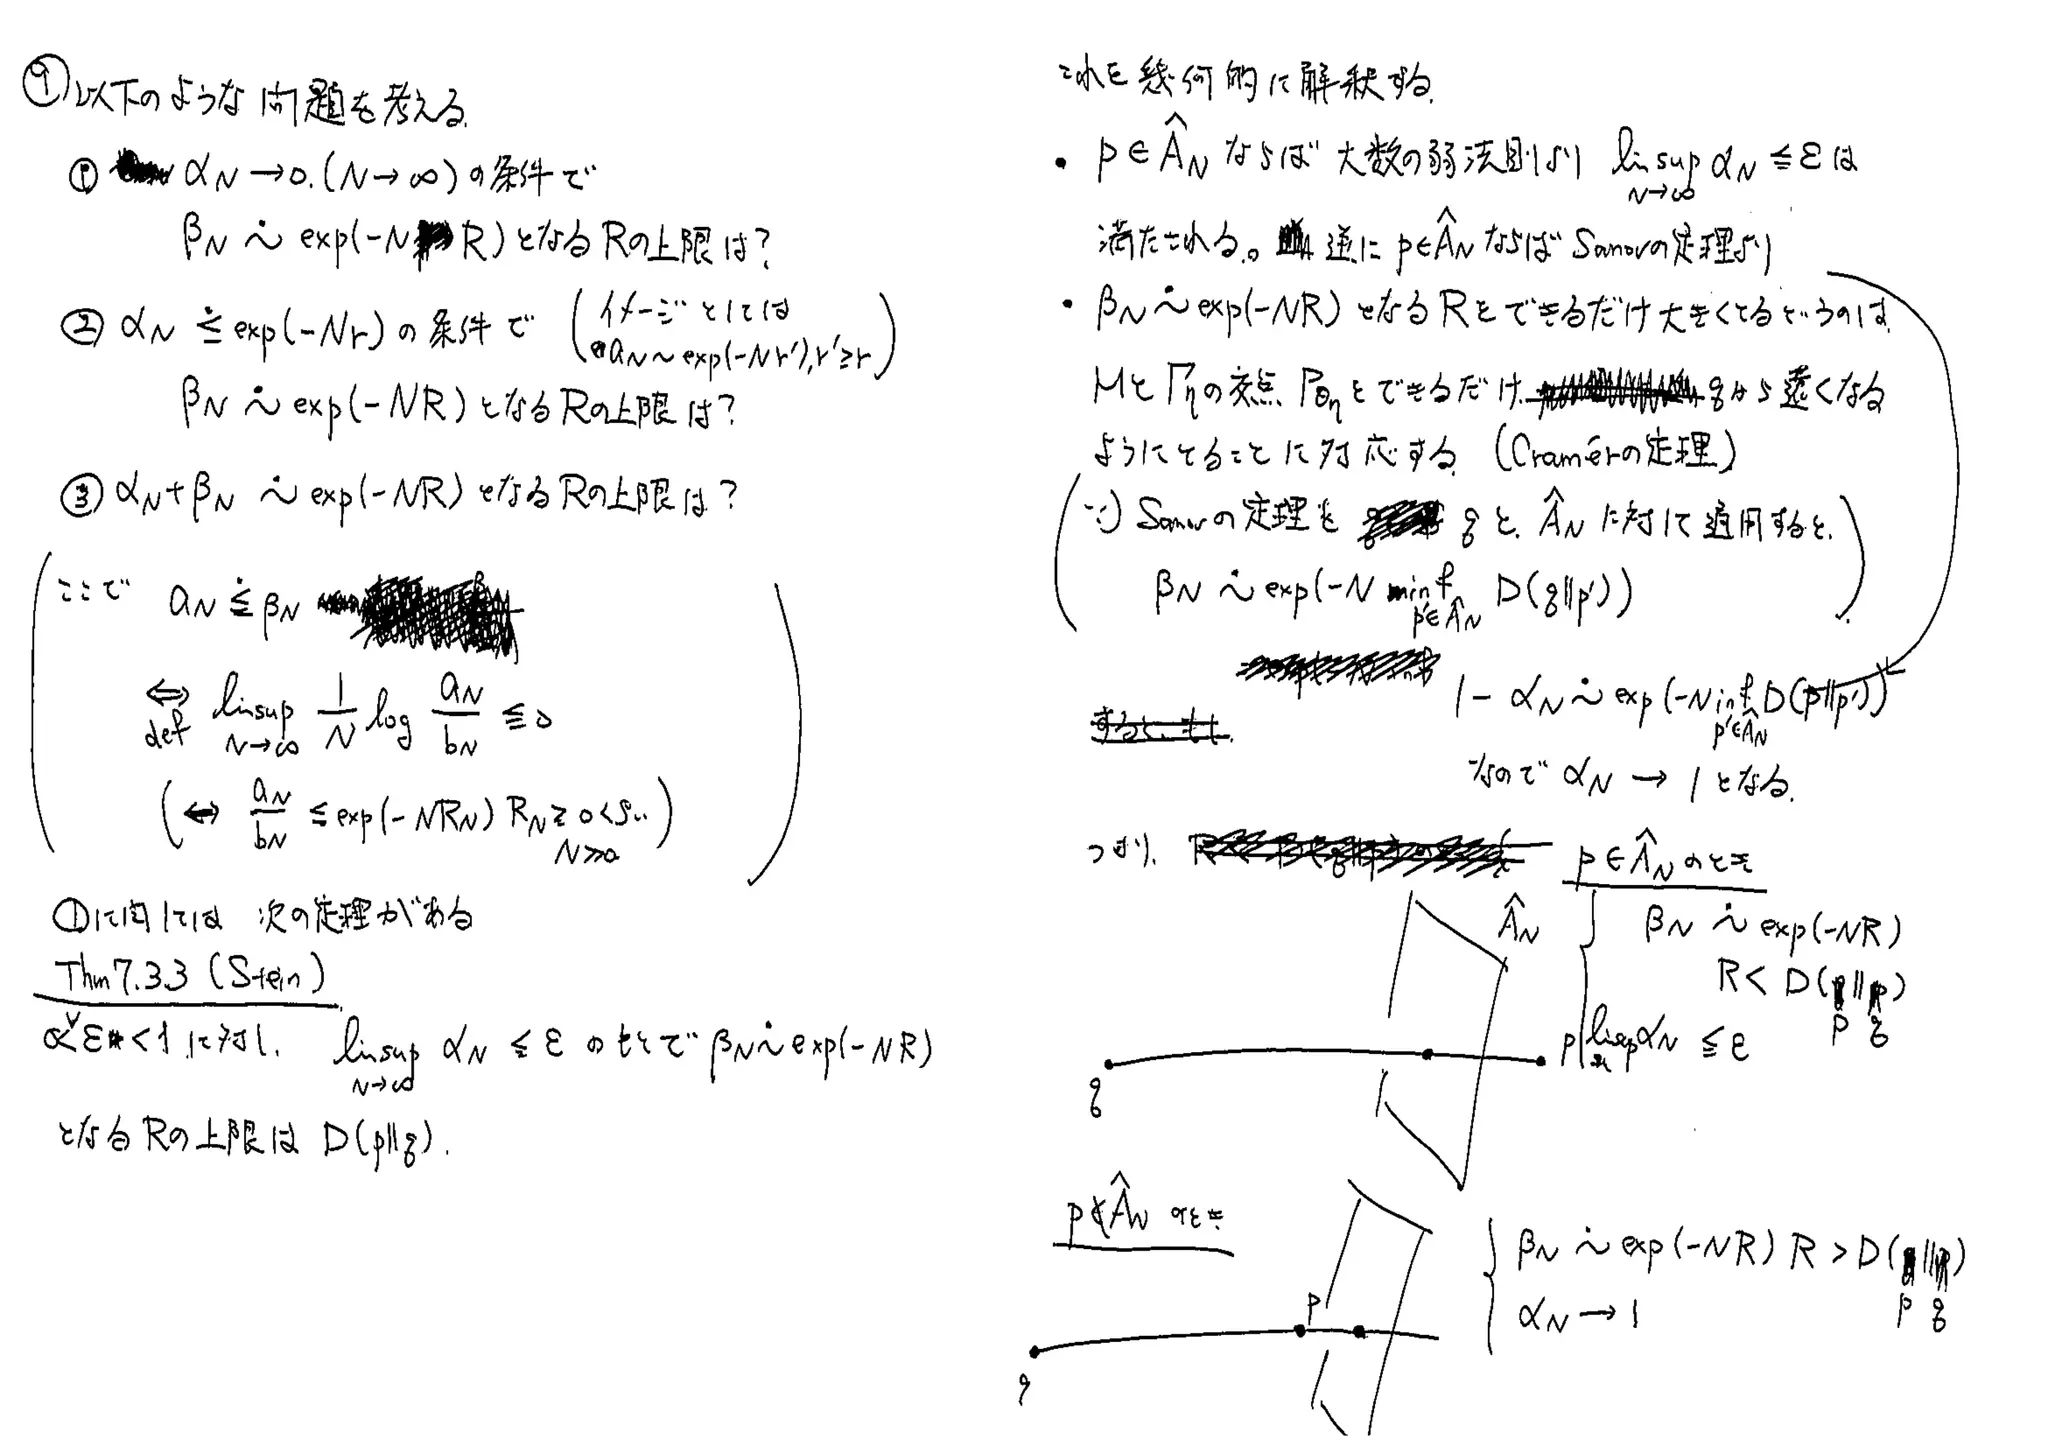 ⑨ 以下のような問題を考える.
① αN → 0. (N → ∞) の条件で
βN ∼̇ exp(-N R) となる Rの上限は?
② αN ≦̇ exp(-Nr) の条件で (イメージとしては
aN ~ exp(-Nr'), r' ≧ r)
βN ∼̇ exp(-NR) となる Rの上限は?
③ αN + βN ∼̇ exp(-NR) となる Rの上限は?
(ここで aN ≦̇ βN
⇔def limsup N→∞ 1/N log aN/bN ≦ 0
(↔ aN/bN ≦ exp(-NRN) RN ≧ 0 くらい)
N≫0
①に関しては 次の定理がある
Thm 7.3.3 (Stein)
0<∀ε<1 に対し. limsup N→∞ αN ≦ ε のもとで βN ∼̇ exp(-NR)
となる Rの上限は D(p||q).
これを幾何的に解釈する.
・ p ∈ ÂN ならば 大数の弱法則より limsup N→∞ αN ≦ ε は
満たされる。 逆に p∈ÂN ならば Sanovの定理より
・ βN ∼̇ exp(-NR) となる Rをできるだけ大きくするというのは.
Mと Γηの交点 Pθηをできるだけ qから遠くなる
ようにすることに対応する (Cramérの定理)
(∵) Sanovの定理を qと. ÂN に対して適用すると.
βN ∼̇ exp(-N inf p'∈ÂN D(q||p'))
1 - αN ∼̇ exp(-N inf p'∈ÂN D(p||p'))
なので αN → 1 となる.
つまり. p ∈ ÂN のとき
ÂN
βN ∼̇ exp(-NR)
R < D(p||q)
limsup αN ≦ ε
q
p
p ∉ ÂN のとき
βN ∼̇ exp(-NR) R > D(p||q)
αN → 1
p
q